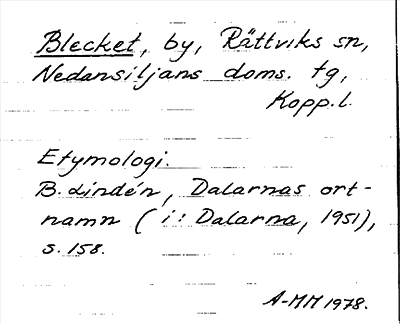 Blecket, by, Rättviks sn,
Nedansiljans doms. tg,
Kopp.l.
Etymologi.
B. Lindén, Dalarnas ort-
namn (i: Dalarna, 1951),
s. 158.
A-MM 1978.